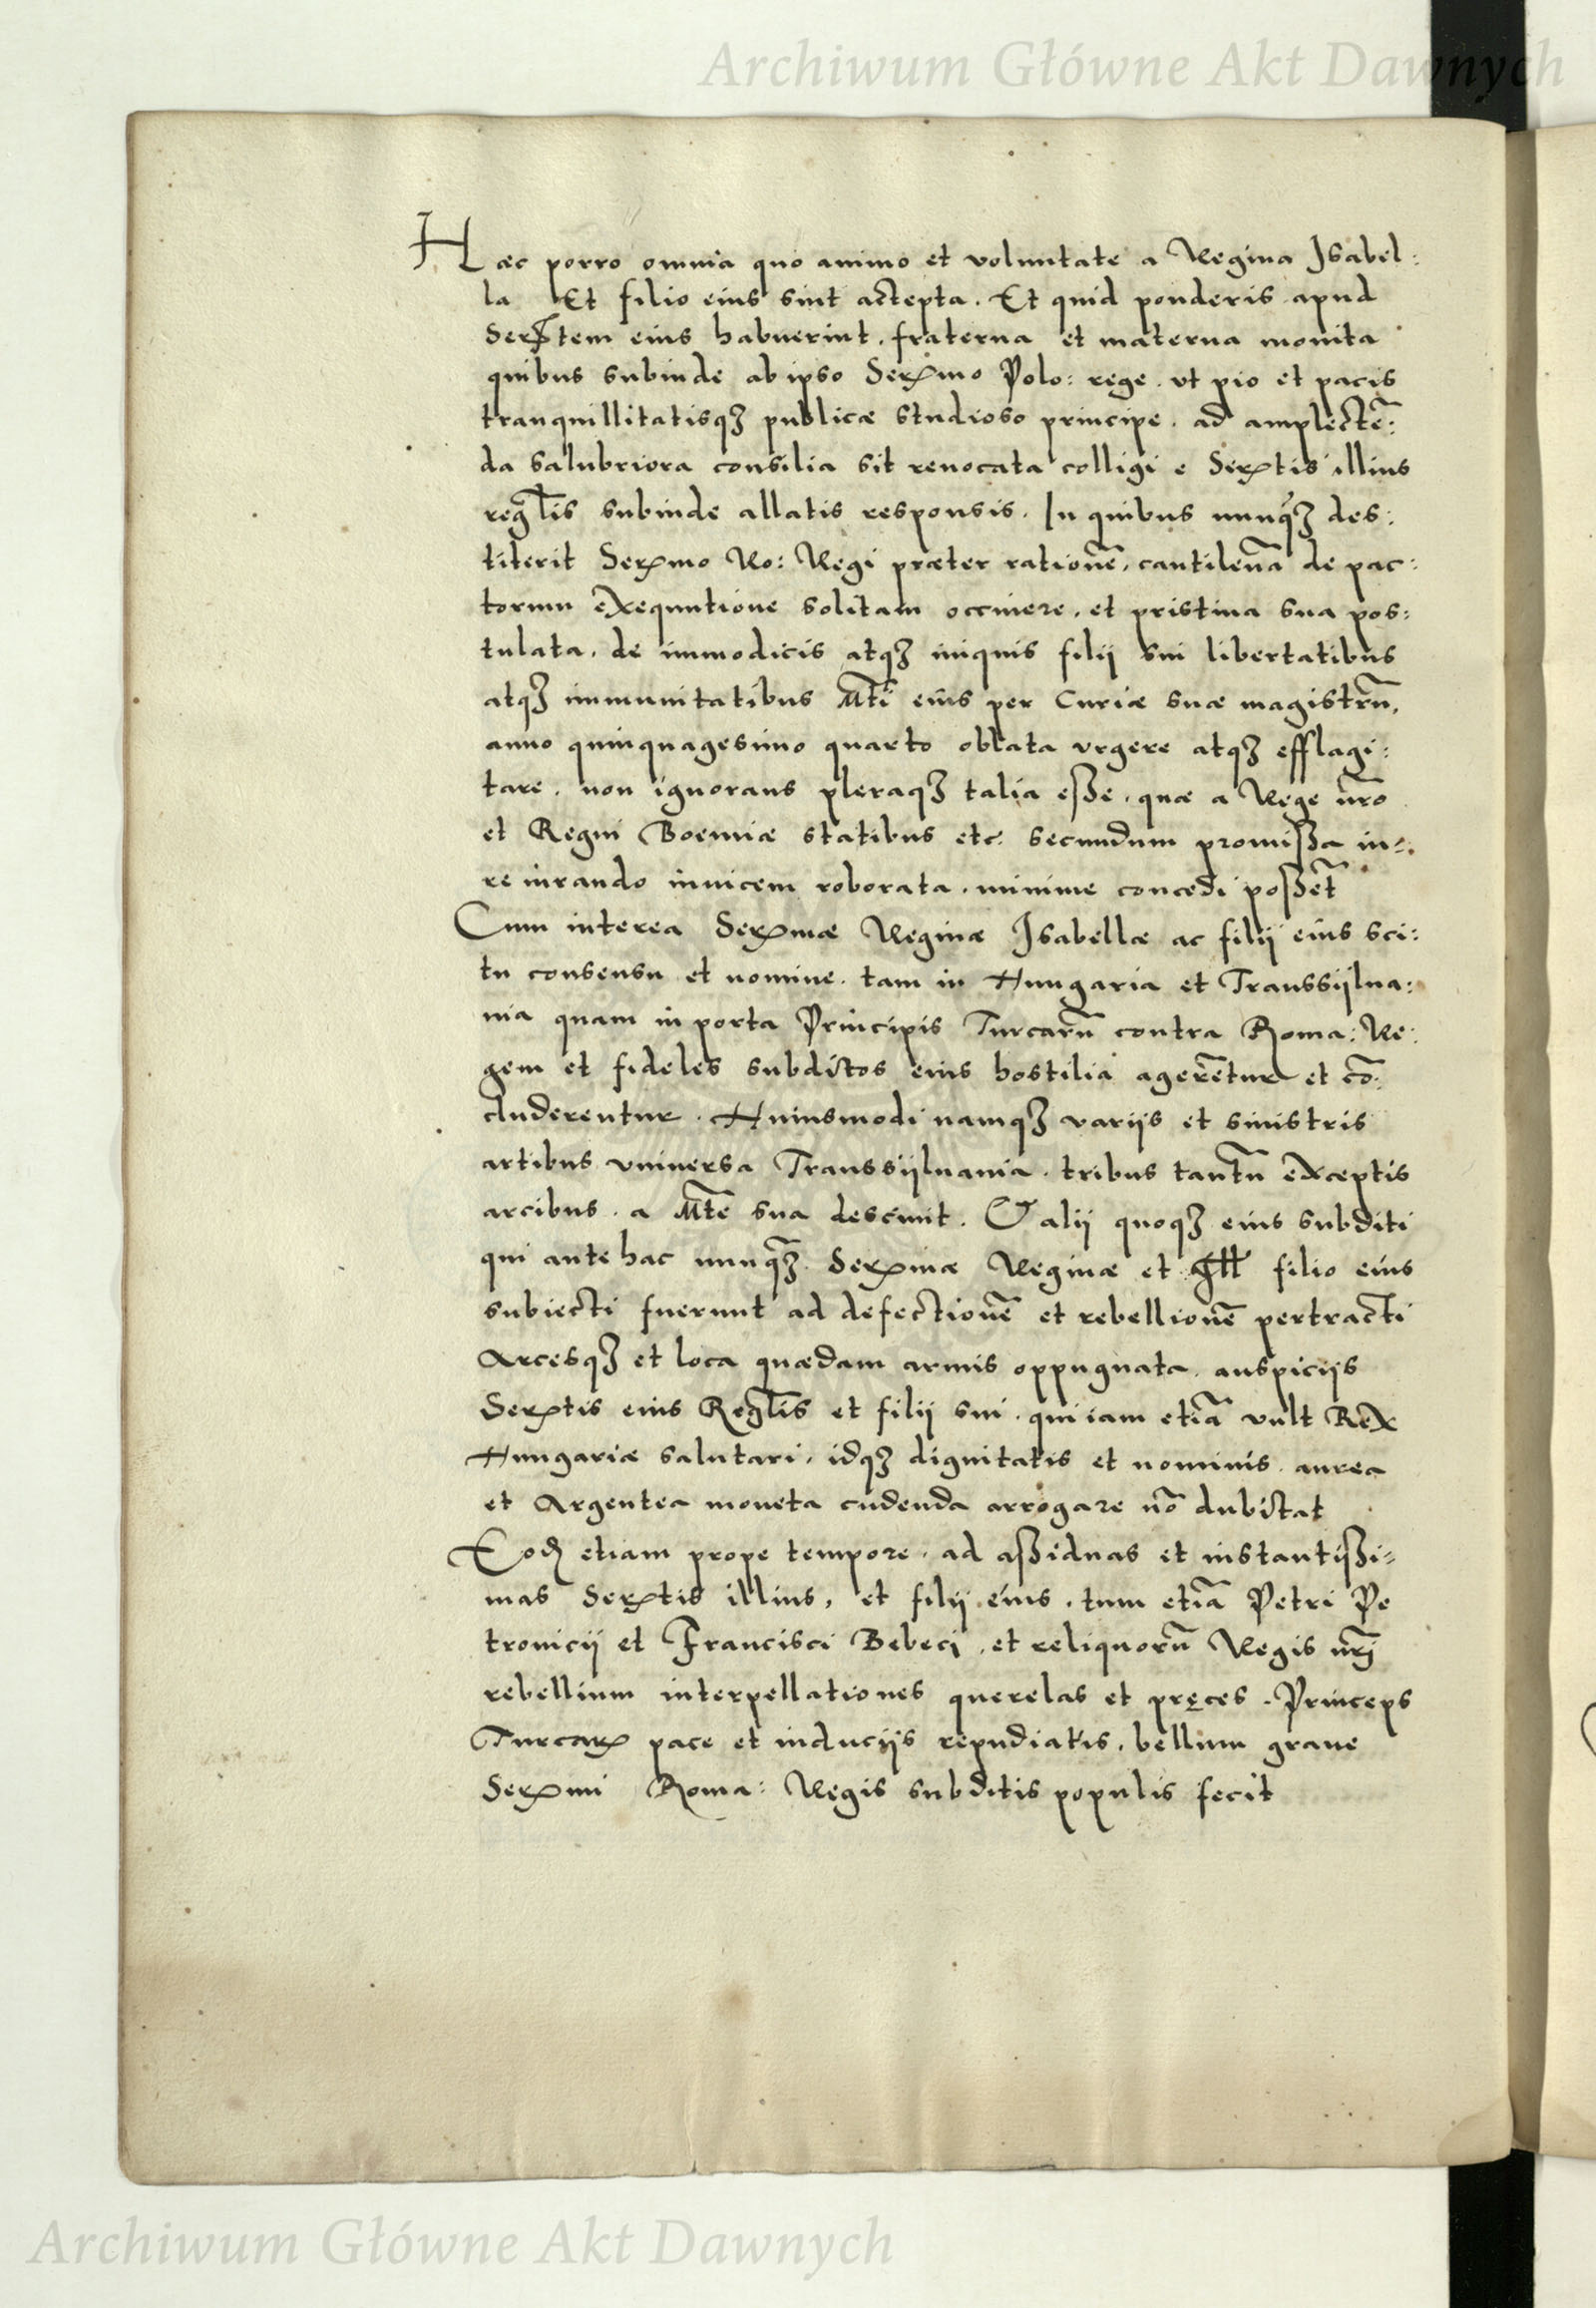 Archiwum Główne Akt Dawnych
Haec porro omnia quo animo et voluntate a Regina Isabel:
la Et filio eius sint accepta. Et quid ponderis apud
Serτem eius habuerint. fraterna et materna monita
quibus subinde ab ipso Serꝫmo Polo: rege. vt pio et pacis
tranquillitatisqꝫ publicæ studioso principe. ad amplectē:
da salubriora consilia sit reuocata colligi e Serꝫtis illius
regl̃is subinde allatis responsis. In quibus nunqꝫ des:
titerit Serꝫmo Ro: Regi præter rationē, cantilenā de pac:
torum exequutione solitam occinere, et pristina sua pos:
tulata, de immodicis atqꝫ iniquis filij sui libertatibus
atqꝫ immunitatibus Mt̃i eius per Curiæ suæ magistrũ,
anno quinquagesimo quarto oblata vrgere atqꝫ efflagi:
tare. non ignorans pleraqꝫ talia eße, quæ a Rege nr̃o
et Regni Boemiæ statibus etc. secundum promißa in:
re iurando inuicem roborata, minime concedi poßēt
Cum interea Serꝫmæ Reginæ Isabellæ ac filij eius sci:
tu consensu et nomine. tam in Hungaria et Transsijlua:
nia quam in porta Principis Turcarũ contra Roma: Re:
gem et fideles subditos eius hostilia agerētur et cō:
cluderentur. Huiusmodi namqꝫ varijs et sinistris
artibus vniuersa Transsijluania. tribus tantũ exceptis
arcibus. a Mt̃e sua desciuit. Et alij quoqꝫ eius subditi
qui ante hac nunqꝫ Serꝫmæ Reginæ et Ill filio eius
subiecti fuerunt ad defectionē et rebellionē pertracti
Arcesqꝫ et loca quædam armis oppugnata. auspicijs
Serꝫtis eius Regl̃is et filij sui. qui iam etiā vult Rex
Hungariæ salutari, idqꝫ dignitatis et nominis. aurea
et Argentea moneta cudenda arrogare nō dubitat
Eodē etiam prope tempore, ad aßiduas et instantißi:
mas Serꝫtis illius, et filij eius. tum etiā Petri Pe
trouicij et Francisci Bebeci, et reliquorũ Regis nr̃j
rebellium interpellationes querelas et pręces. Princeps
Turcarꝫ pace et inducijs repudiatis, bellum graue
Serꝫmi Roma: Regis subditis populis fecit
Archiwum Główne Akt Dawnych